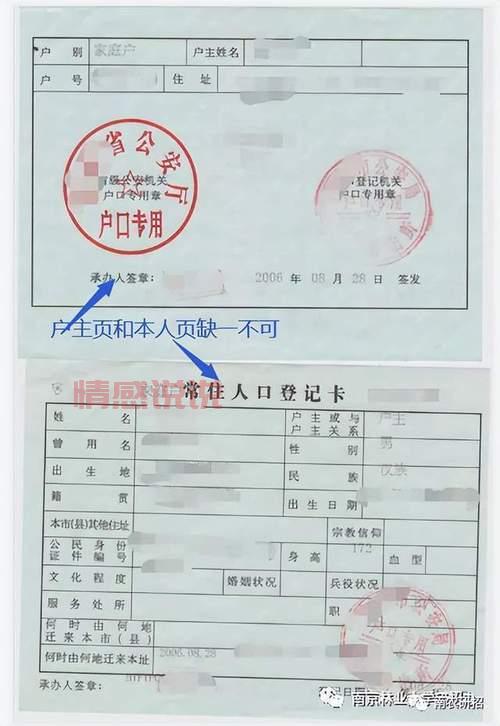 户 别 家庭户 户主姓名
户 号 住 址
省公安厅
户口专用
省级公安机关
户口专用章
登记机关
户口专用章
承办人签章: 2006 年 08 月 28 日 签发
户主页和本人页缺一不可
情感说说
常住人口登记卡
姓 名 户主或与户主关系 户主
曾 用 名 性 别 男
出 生 地 民 族 汉族
籍 贯 出 生 日 期
本市(县)其他住址 宗教信仰
公民身份证件编号 身 高 172 血 型
文 化 程 度 婚姻状况 兵役状况
服 务 处 所 职
公安局
户口专用
何时由何地迁来本市(县)
何时由何地迁来本址 2006.08.28
承办人签章:
登记日期:
南京林业大
南农研招